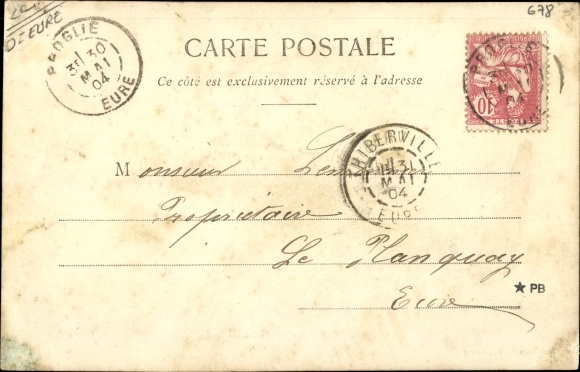 678
DE EURE
BROGLIE
3E 30
MAI
04
EURE
CARTE POSTALE
Ce côté est exclusivement réservé à l'adresse
10
MAI
04
EURE
THIBERVILLE
31
MAI
04
EURE
Monsieur
Propriétaire
Le Planquay
Eure
★ PB